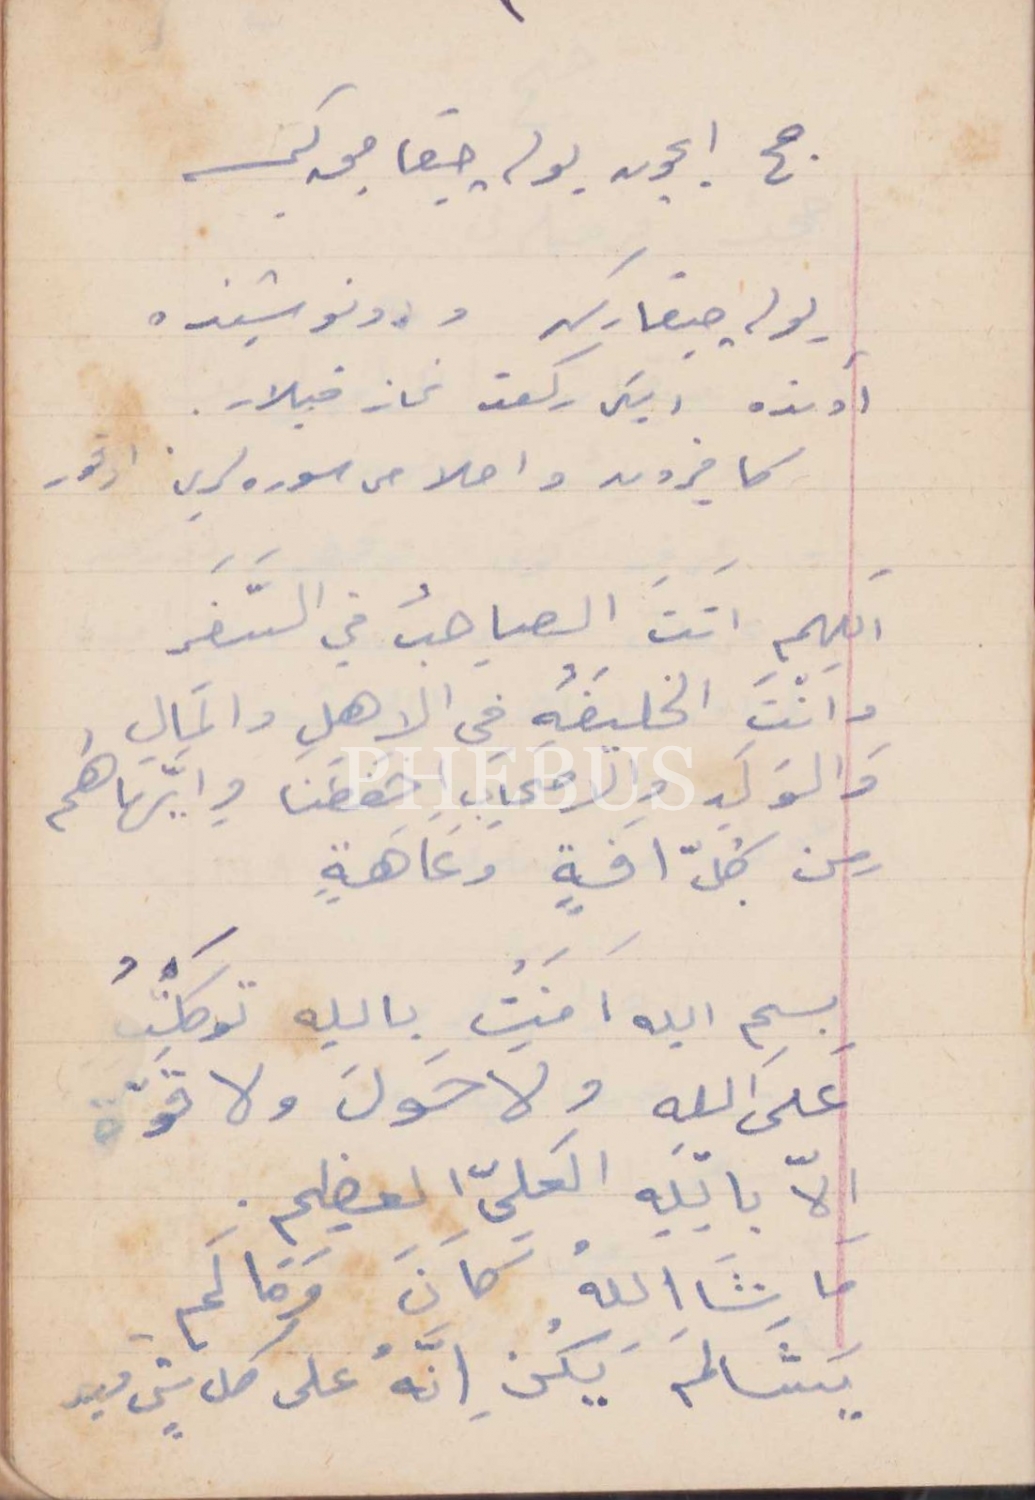 حج ایچون یوله چیقاجق کیمسه
یوله چیقارکن و دونوشنده
اونده ایکی رکعت نماز قیلار.
کافرون و اخلاص سوره لرینی اوقور
اَللهم اَنتَ الصاحِبُ فِي السَّفَر
وَاَنْتَ الخليفَهُ فِى الاهلِ والمَالِ
وَالوَلَدِ والاصحَابِ اِحفَظنَا وِايَّاهُم
مِن كُلّ افَةٍ وَعَاهَةٍ
بِسمِ الله اَمَنتُ بِاللهِ تَوَكَلْتُ
عَلىَ اللهِ ولا حَولَ ولا قُوّة
اِلاّ بِاللهِ العَلِىّ العظيم.
مَا شَا اللهُ كَانَ وَمَا لَم
يَشَا لَم يَكُن اِنَّهُ على كل شئ قدير
PHEBUS